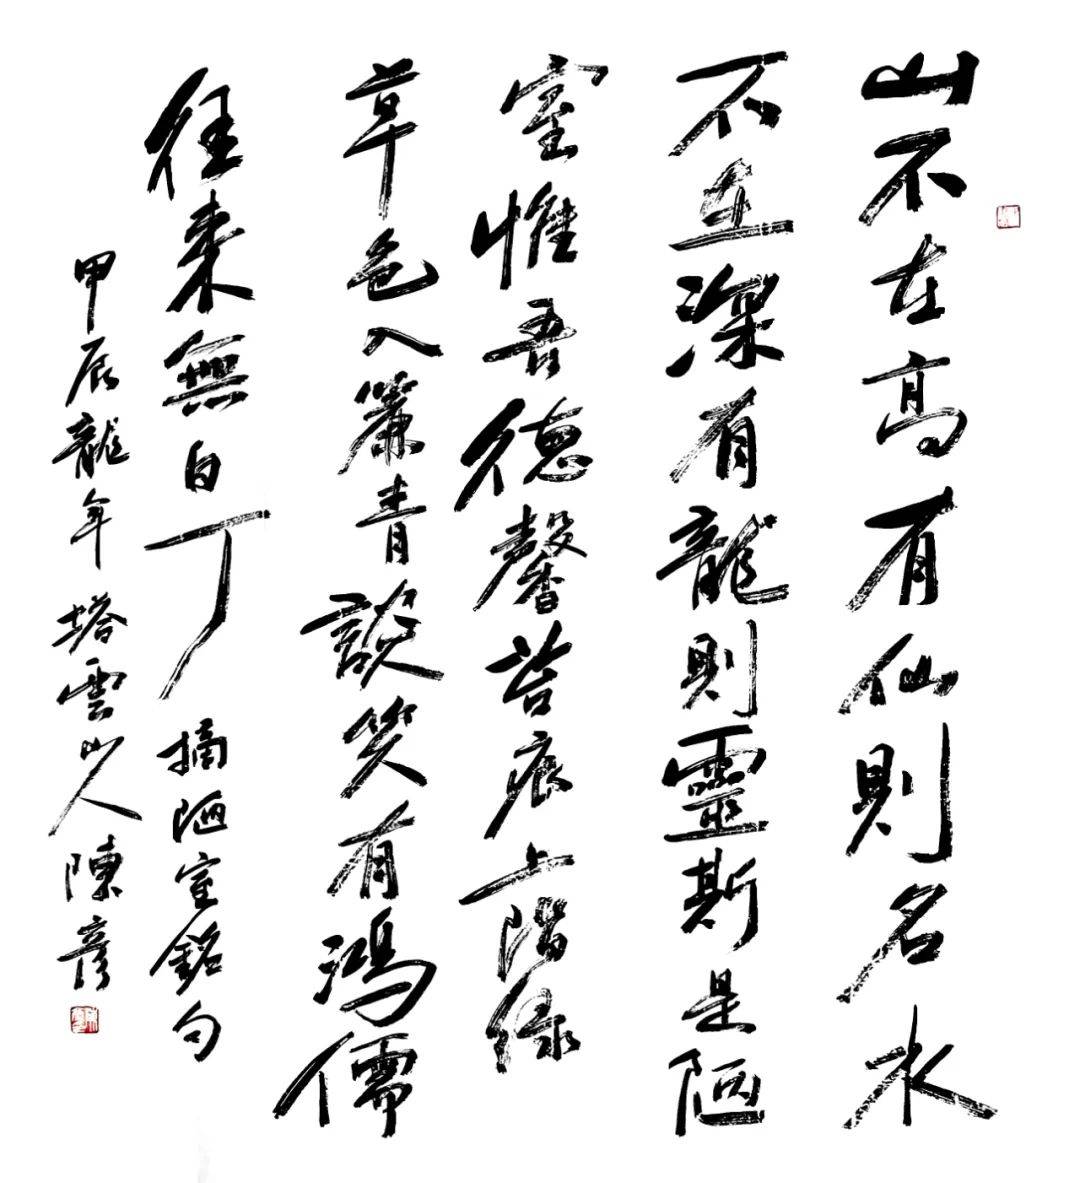 山不在高有仙則名水
不在深有龍則靈斯是陋
室惟吾德馨苔痕上階綠
草色入簾青談笑有鴻儒
往來無白丁摘陋室銘句
甲辰龍年塔雲山人陳彥